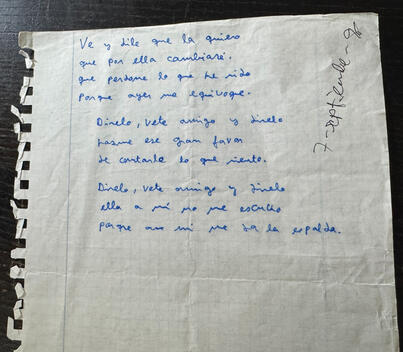 Ve y dile que la quiero
que por ella cambiaré.
que perdone lo que he sido
Porque ayer me equivoque.
Dinelo, vete amigo y dinelo
hazme ese gran favor
de contarle lo que siento.
Dinelo, vete amigo y dinelo
ella a mi no me escucho
porque a mi me da la espalda.
7-septiembre-